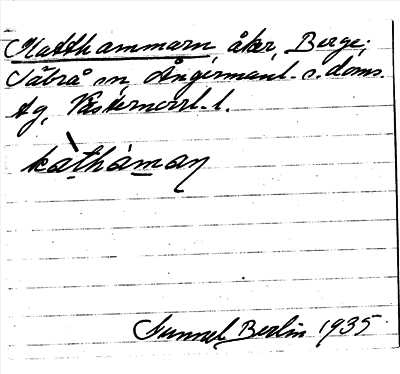 Katthammarn, åker, Berge,
Säbrå sn, Ångermanl. s. doms.
tg, Västernorrl. l.
kàthámaṇ
Gunnel Berlin 1935